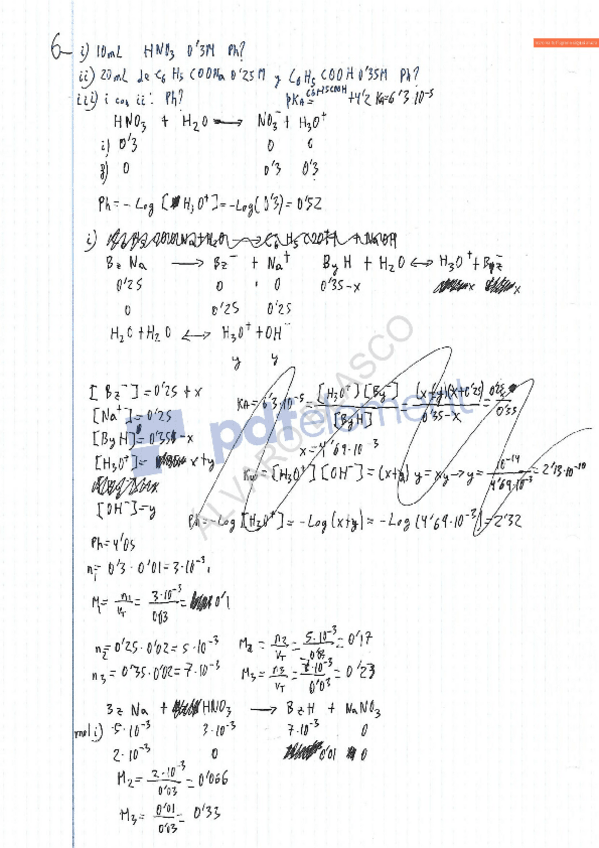 6- i) 10mL HNO3 0'3M Ph?
ii) 20mL de C6H5COONa 0'25M y C6H5COOH 0'35M Ph?
iii) i con ii: Ph? pKA C6H5COOH = +4'2 KA=6'3·10^-5
HNO3 + H2O → NO3^- + H3O^+
i) 0'3 0 0
f) 0 0'3 0'3
Ph = -Log [H3O^+] = -Log(0'3) = 0'52
i)
BzNa → Bz^- + Na^+ BzH + H2O ↔ H3O^+ + Bz^-
0'25 0 0 0'35-x x x
0 0'25 0'25
H2O + H2O ↔ H3O^+ + OH^-
y y
[Bz^-] = 0'25 + x KA = 6'3·10^-5 = [H3O^+][Bz^-] / [BzH] = (x+y)(x+0'25) / 0'35-x = 0'25 / 0'35
[Na^+] = 0'25
[BzH] = 0'35-x
x = 4'69·10^-3
[H3O^+] = x+y
Kw = [H3O^+][OH^-] = (x+y)y = xy → y = 10^-14 / 4'69·10^-3 = 2'13·10^-10
[OH^-] = y
Ph = -Log [H3O^+] = -Log(x+y) = -Log(4'69·10^-3) = 2'32
Ph = 4'05
n1 = 0'3·0'01 = 3·10^-3
M1 = n1/VT = 3·10^-3 / 0'03 = 0'1
n2 = 0'25·0'02 = 5·10^-3 M2 = n2/VT = 5·10^-3 / 0'03 = 0'17
n3 = 0'35·0'02 = 7·10^-3 M3 = n3/VT = 7·10^-3 / 0'03 = 0'23
BzNa + HNO3 → BzH + NaNO3
mol i) 5·10^-3 3·10^-3 7·10^-3 0
2·10^-3 0 0'01 0
M2 = 2·10^-3 / 0'03 = 0'066
M3 = 0'01 / 0'03 = 0'33
pdfelement